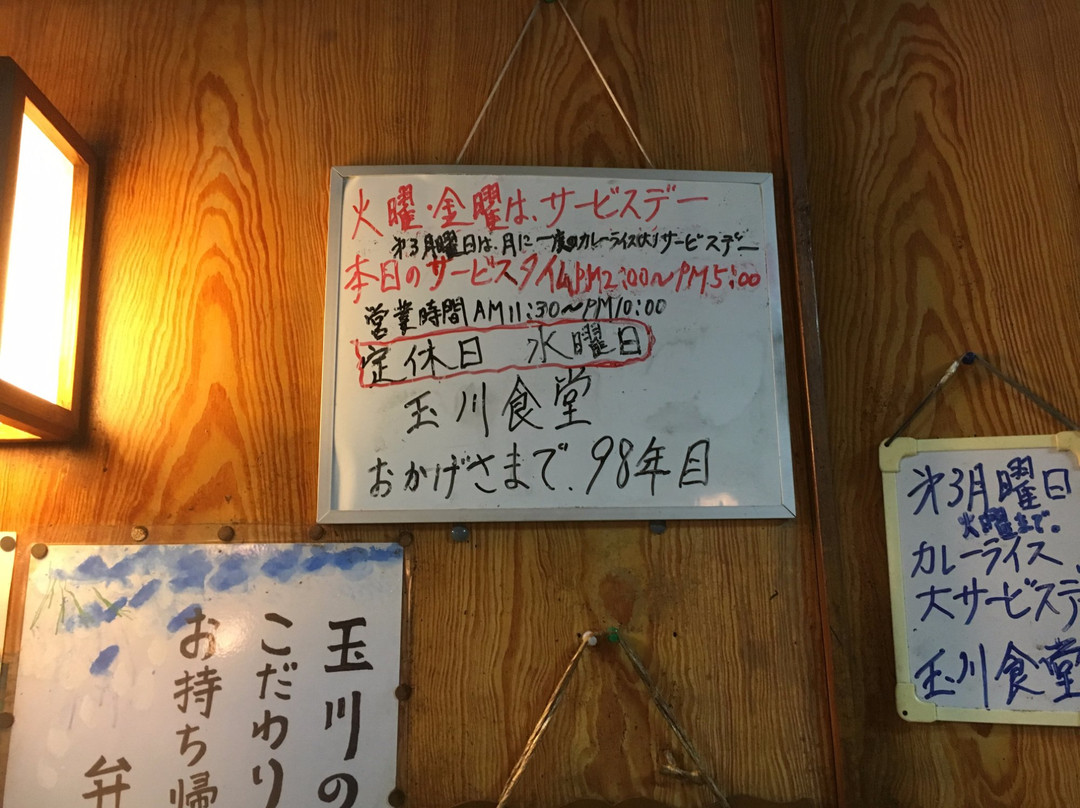 火曜・金曜は、サービスデー
第3月曜日は、月に一度のカレーライス(大)サービスデー
本日のサービスタイムPM2:00〜PM5:00
営業時間AM11:30〜PM10:00
定休日 水曜日
玉川食堂
おかげさまで、98年目
第3月曜日
火曜まで。
カレーライス
大サービスデ
玉川食堂
玉川の
こだわり
お持ち帰
弁